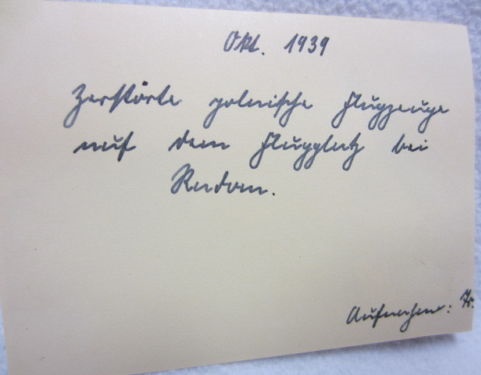 Okt. 1939
Zerstörte polnische Flugzeuge
auf dem Flugplatz bei
Radom.
Aufnahme: